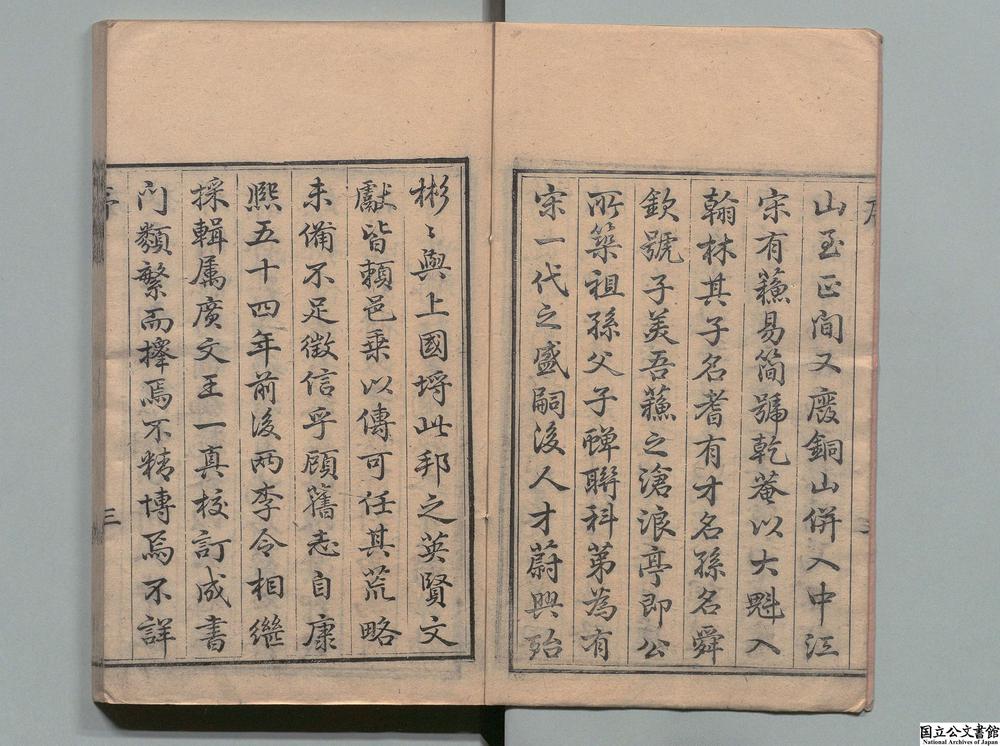 山至正间又廢銅山併入中江
宋有蘓易简號乾菴以大魁入
翰林其子名耆有才名孫名舜
欽號子美吾蘓之滄浪亭即公
所築祖孫父子蟬聯科第為有
宋一代之盛嗣後人才蔚興殆
彬〻與上國埒此邦之英賢文
獻皆賴邑乗以傳可任其荒略
未備不足徵信乎顧舊志自康
熙五十四年前後兩李令相繼
採輯属廣文王一真校訂成書
门類繁而擇焉不精博焉不詳
序
三
国立公文書館
National Archives of Japan